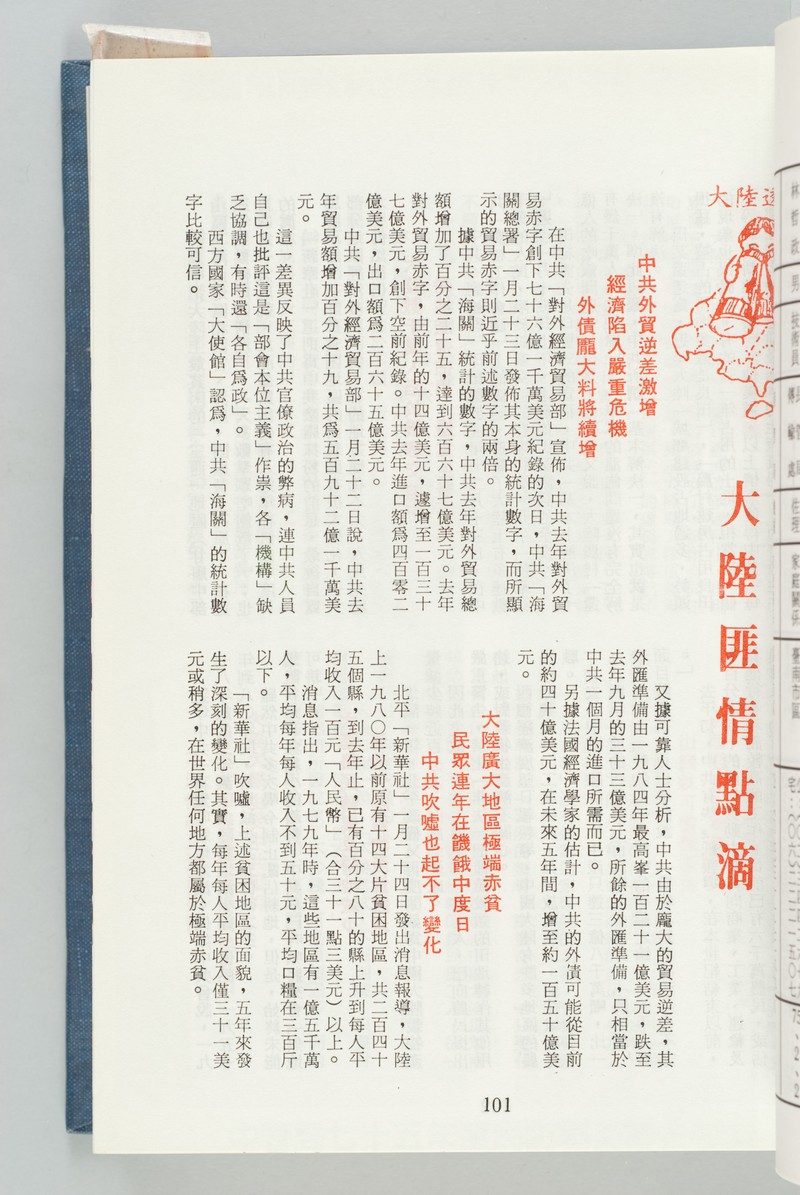 大陸
大陸匪情點滴
中共外貿逆差激增
經濟陷入嚴重危機
外債龐大料將續增
在中共「對外經濟貿易部」宣佈，中共去年對外貿
易赤字創下七十六億一千萬美元紀錄的次日，中共「海
關總署」一月二十三日發佈其本身的統計數字，而所顯
示的貿易赤字則近乎前述數字的兩倍。
據中共「海關」統計的數字，中共去年對外貿易總
額增加了百分之二十五，達到六百六十七億美元。去年
對外貿易赤字，由前年的十四億美元，遽增至一百三十
七億美元，創下空前紀錄。中共去年進口額爲四百零二
億美元，出口額爲二百六十五億美元。
中共「對外經濟貿易部」一月二十二日說，中共去
年貿易額增加百分之十九，共爲五百九十二億一千萬美
元。
這一差異反映了中共官僚政治的弊病，連中共人員
自己也批評這是「部會本位主義」作祟，各「機構」缺
乏協調，有時還「各自爲政」。
西方國家「大使館」認爲，中共「海關」的統計數
字比較可信。
又據可靠人士分析，中共由於龐大的貿易逆差，其
外匯準備由一九八四年最高峯一百二十一億美元，跌至
去年九月的三十三億美元，所餘的外匯準備，只相當於
中共一個月的進口所需而已。
另據法國經濟學家的估計，中共的外債可能從目前
的約四十億美元，在未來五年間，增至約一百五十億美
元。
大陸廣大地區極端赤貧
民眾連年在饑餓中度日
中共吹噓也起不了變化
北平「新華社」一月二十四日發出消息報導，大陸
上一九八〇年以前原有十四大片貧困地區，共二百四十
五個縣，到去年止，已有百分之八十的縣上升到每人平
均收入一百元「人民幣」（合三十一點三美元）以上。
消息指出，一九七九年時，這些地區有一億五千萬
人，平均每年每人收入不到五十元，平均口糧在三百斤
以下。
「新華社」吹噓，上述貧困地區的面貌，五年來發
生了深刻的變化。其實，每年每人平均收入僅三十一美
元或稍多，在世界任何地方都屬於極端赤貧。
101